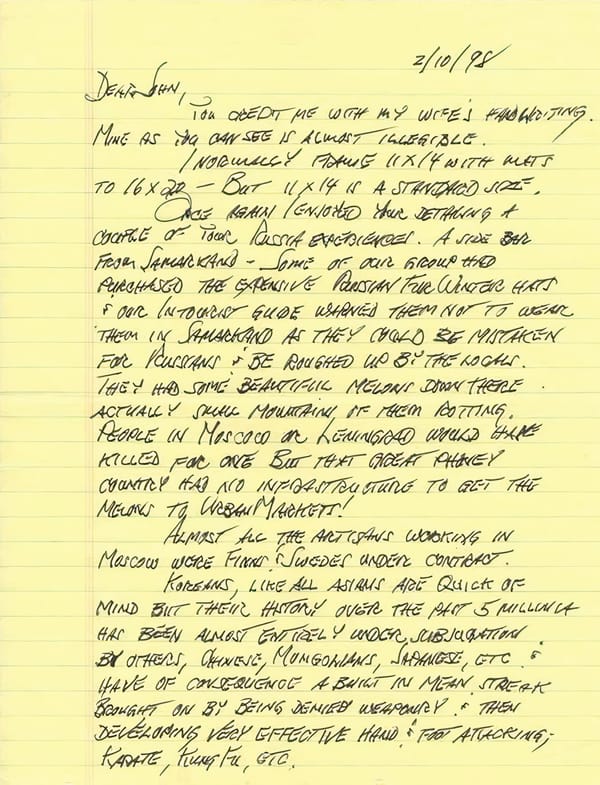 2/10/98
DEAR JOHN,
YOU CREDIT ME WITH MY WIFE'S HANDWRITING.
MINE AS YOU CAN SEE IS ALMOST ILLEGIBLE.
I NORMALLY FRAME 11X14 WITH MATS
TO 16X20 – BUT 11X14 IS A STANDARD SIZE.
ONCE AGAIN I ENJOYED YOUR DETAILING A
COUPLE OF YOUR RUSSIA EXPERIENCES. A SIDE BAR
FROM SAMARKAND – SOME OF OUR GROUP HAD
PURCHASED THE EXPENSIVE RUSSIAN FUR WINTER HATS
& OUR INTOURIST GUIDE WARNED THEM NOT TO WEAR
THEM IN SAMARKAND AS THEY COULD BE MISTAKEN
FOR RUSSIANS & BE ROUGHED UP BY THE LOCALS.
THEY HAD SOME BEAUTIFUL MELONS DOWN THERE.
ACTUALLY SMALL MOUNTAINS OF THEM ROTTING.
PEOPLE IN MOSCOW OR LENINGRAD WOULD HAVE
KILLED FOR ONE BUT THAT GREAT PHONEY
COUNTRY HAD NO INFRASTRUCTURE TO GET THE
MELONS TO URBAN MARKETS!
ALMOST ALL THE ARTISANS WORKING IN
MOSCOW WERE FINNS & SWEDES UNDER CONTRACT.
KOREANS, LIKE ALL ASIANS ARE QUICK OF
MIND BUT THEIR HISTORY OVER THE PAST 5 MILLINIA
HAS BEEN ALMOST ENTIRELY UNDER SUBJUGATION
BY OTHERS, CHINESE, MONGOLIANS, JAPANESE, ETC &
HAVE OF CONSEQUENCE A BUILT IN MEAN STREAK
BROUGHT ON BY BEING DENIED WEAPONRY & THEN
DEVELOPING VERY EFFECTIVE HAND & FOOT ATTACKING;
KARATE, KUNG FU, ETC.